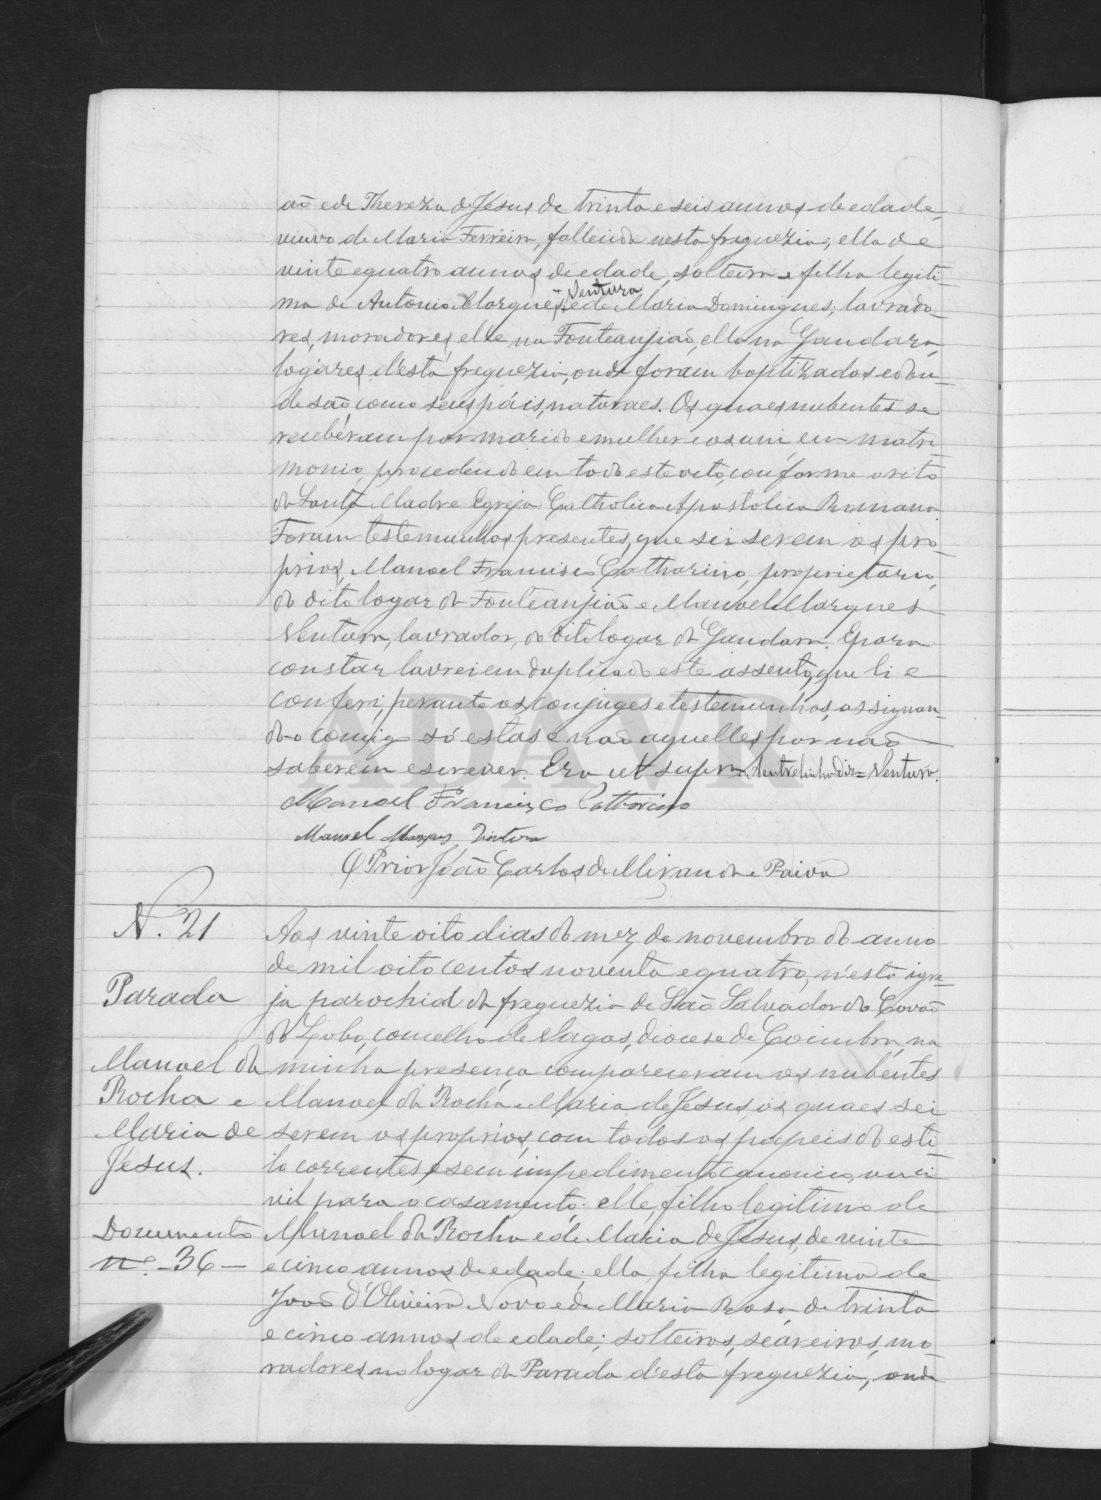 ão e de Thereza de Jesus de trinta e seis annos de edade,
viuvo de Maria Ferreira, fallecida nesta freguezia; ella de
vinte e quatro annos de edade, solteira e filha legiti-
ma de Antonio Marques Ventura e de Maria Domingues; lavrado-
res, moradores, elle na Fonteanjião, ella na Gandara,
logares d'esta freguezia, onde foram baptizados e d'on-
de são, como seus páis, naturaes. Os quaes nubentes se
recebéram por marido e mulher e os uni em matri
monio, procedendo em todo este acto, conforme o rito
da Santa Madre Egreja Catholica Apostolica Romana.
Foram testemunhas presentes, que sei serem os pro-
prios, Manoel Francisco Catharino, proprietario,
do dito logar da Fonteanjião e Manoel Marques
Ventura, lavrador, do dito logar da Gandara. E para
constar lavrei em duplicado este assento, que li e
conferi, perante os conjuges e testemunhas, assignan-
do-o comigo só estas e não aquelles por não
saberem escrever. Era ut supra. A entrelinha diz = Ventura.
Manoel Francisco Catharino
Manuel Marques Ventura
O Prior João Carlos de Miranda e Paiva
N. 21
Parada
Manoel da
Rocha e
Maria de
Jesus.
Documento
nº - 36 -
Aos vinte oito dias do mez de novembro do anno
de mil oito centos noventa e quatro, n'esta igre-
ja parochial da freguezia de São Salvador do Covão
do Lobo, concelho de Vagos, diocese de Coimbra, na
minha presença compareceram os nubentes
Manoel da Rocha e Maria de Jesus, os quaes sei
serem os proprios, com todos os papeis do esti-
lo correntes, e sem impedimento canonico, ou ci
vil para o casamento; elle filho legitimo de
Manoel da Rocha e de Maria de Jesus, de vinte
e cinco annos de edade; ella filha legitima de
João d'Oliveira Novo e de Maria Rosa, de trinta
e cinco annos de edade; solteiros, seareiros, mo-
radores no logar da Parada d'esta freguezia, onde
ADAVR